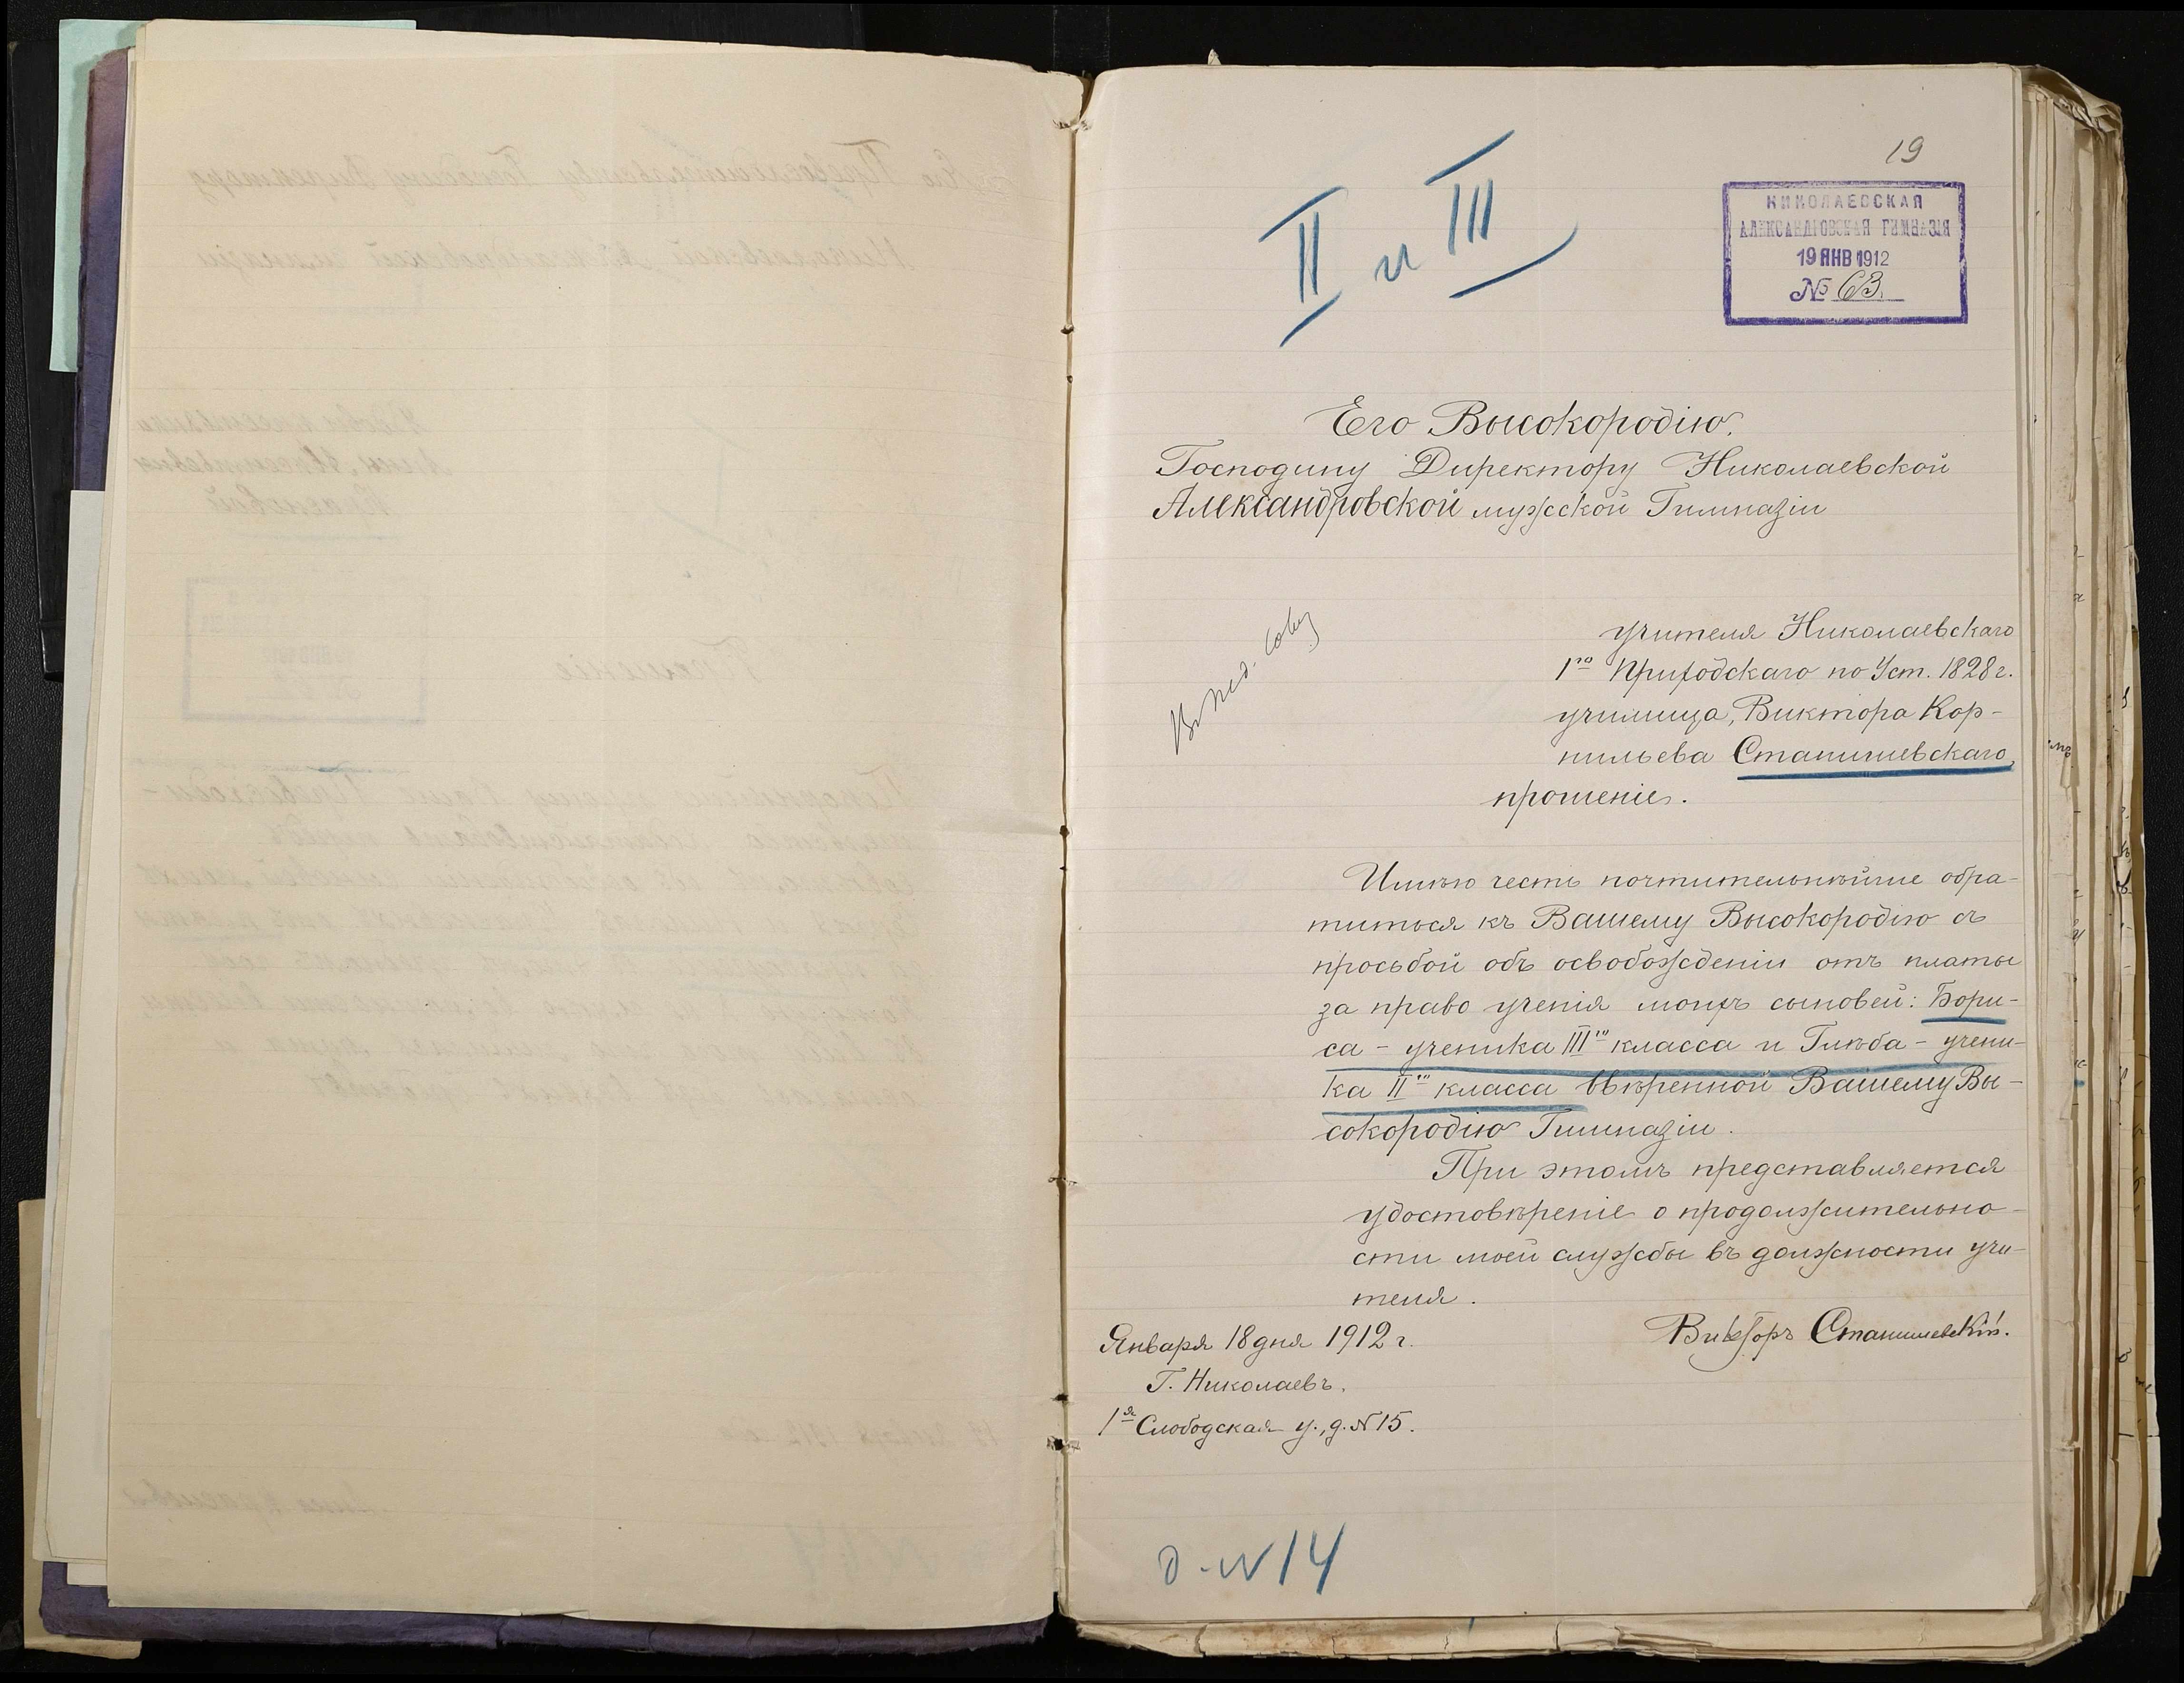 19
II и III
НИКОЛАЕВСКАЯ
АЛЕКСАНДРОВСКАЯ ГИМНАЗІЯ
19 ЯНВ 1912
№ 63.
Его Высокородію.
Господину Директору Николаевской
Александровской мужской Гимназіи
Въ пед. совѣ
учителя Николаевскаго
1го Приходскаго по Уст. 1828 г.
училища, Виктора Кор-
нильева Станишевскаго,
прошеніе.
Имѣю честь почтительнѣйше обра-
титься къ Вашему Высокородію съ
просьбой объ освобожденіи отъ платы
за право ученія моихъ сыновей: Бори-
са - ученика IIIго класса и Глѣба - учени-
ка IIго класса ввѣренной Вашему Вы-
сокородію Гимназіи.
При этомъ представляется
удостовѣреніе о продолжительно-
сти моей службы въ должности учи-
теля.
Викторъ Станишевскій.
Января 18 дня 1912 г.
Г. Николаевъ.
1я Слободская у., д. № 15.
д. № 14